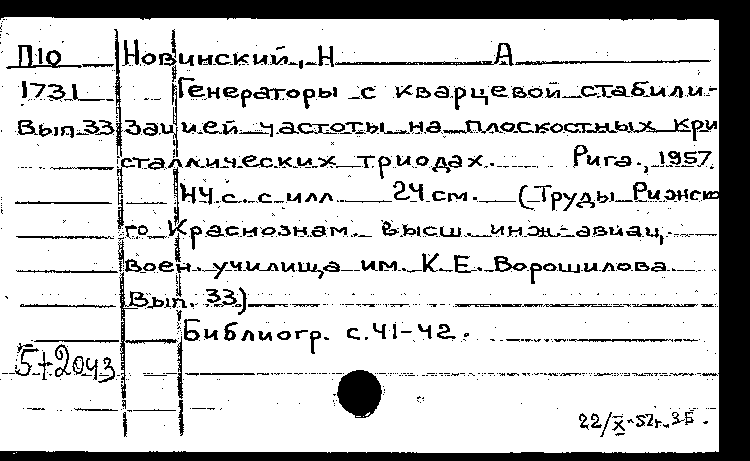 П10 Новинский, Н А
1731 Генераторы с кварцевой стабили-
Вып.33 зацией частоты на плоскостных кри
сталлических триодах. Рига, 1957.
44 с. с илл. 24 см. (Труды Рижско
го Краснознам. высш. инж-авиац.
воен. училища им. К.Е. Ворошилова
Вып. 33)
Библиогр. с. 41-42.
5+2043
22/X-57г.